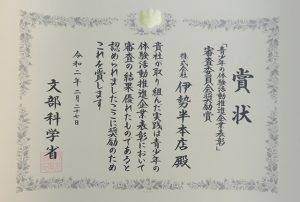 賞状
「青少年の体験活動推進企業表彰」
審査委員会奨励賞
株式会社 伊勢半本店 殿
貴社が取り組んだ実践は青少年の
体験活動推進企業表彰において
審査の結果優れたものであると
認められましたここに奨励のため
これを賞します
令和二年二月二七日
文部科学省